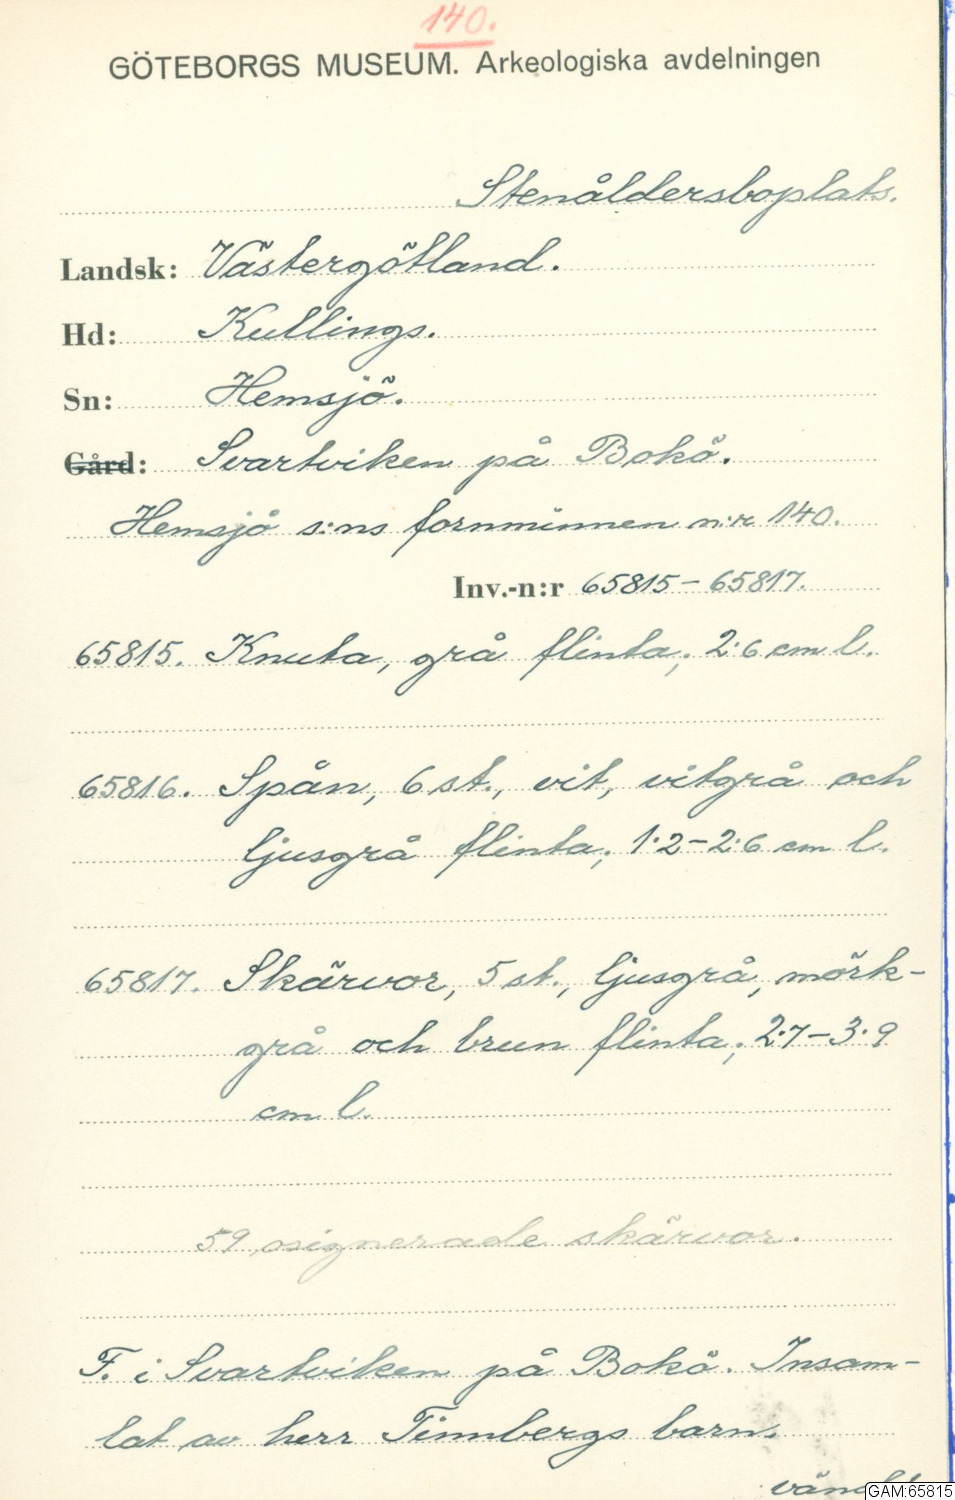 140.
GÖTEBORGS MUSEUM. Arkeologiska avdelningen
Stenåldersboplats.
Landsk: Västergötland.
Hd: Kullings.
Sn: Hemsjö.
Gård: Svartviken på Bokö.
Hemsjö s:ns fornminnen n:r 140.
Inv.-n:r 65815-65817.
65815. Knuta, grå flinta; 2.6 cm l.
65816. Spån, 6 st., vit, vitgrå och
ljusgrå flinta; 1.2-2.6 cm l.
65817. Skärvor, 5 st., ljusgrå, mörk-
grå och brun flinta; 2.7-3.9
cm l.
59 osignerade skärvor.
F. i Svartviken på Bokö. Insam-
lat av herr Tinnbergs barn.
GAM:65815